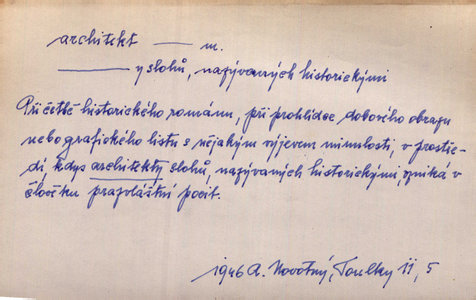 architekt — m.
——— y slohů, nazývaných historickými
Při četbě historického románu, při prohlídce dobového obrazu
nebo grafického listu s nějakým výjevem minulosti, v prostře-
dí, kdys architekty slohů, nazývaných historickými, vzniká v
člověku prazvláštní pocit.
1946 A. Novotný, Toulky II, 5